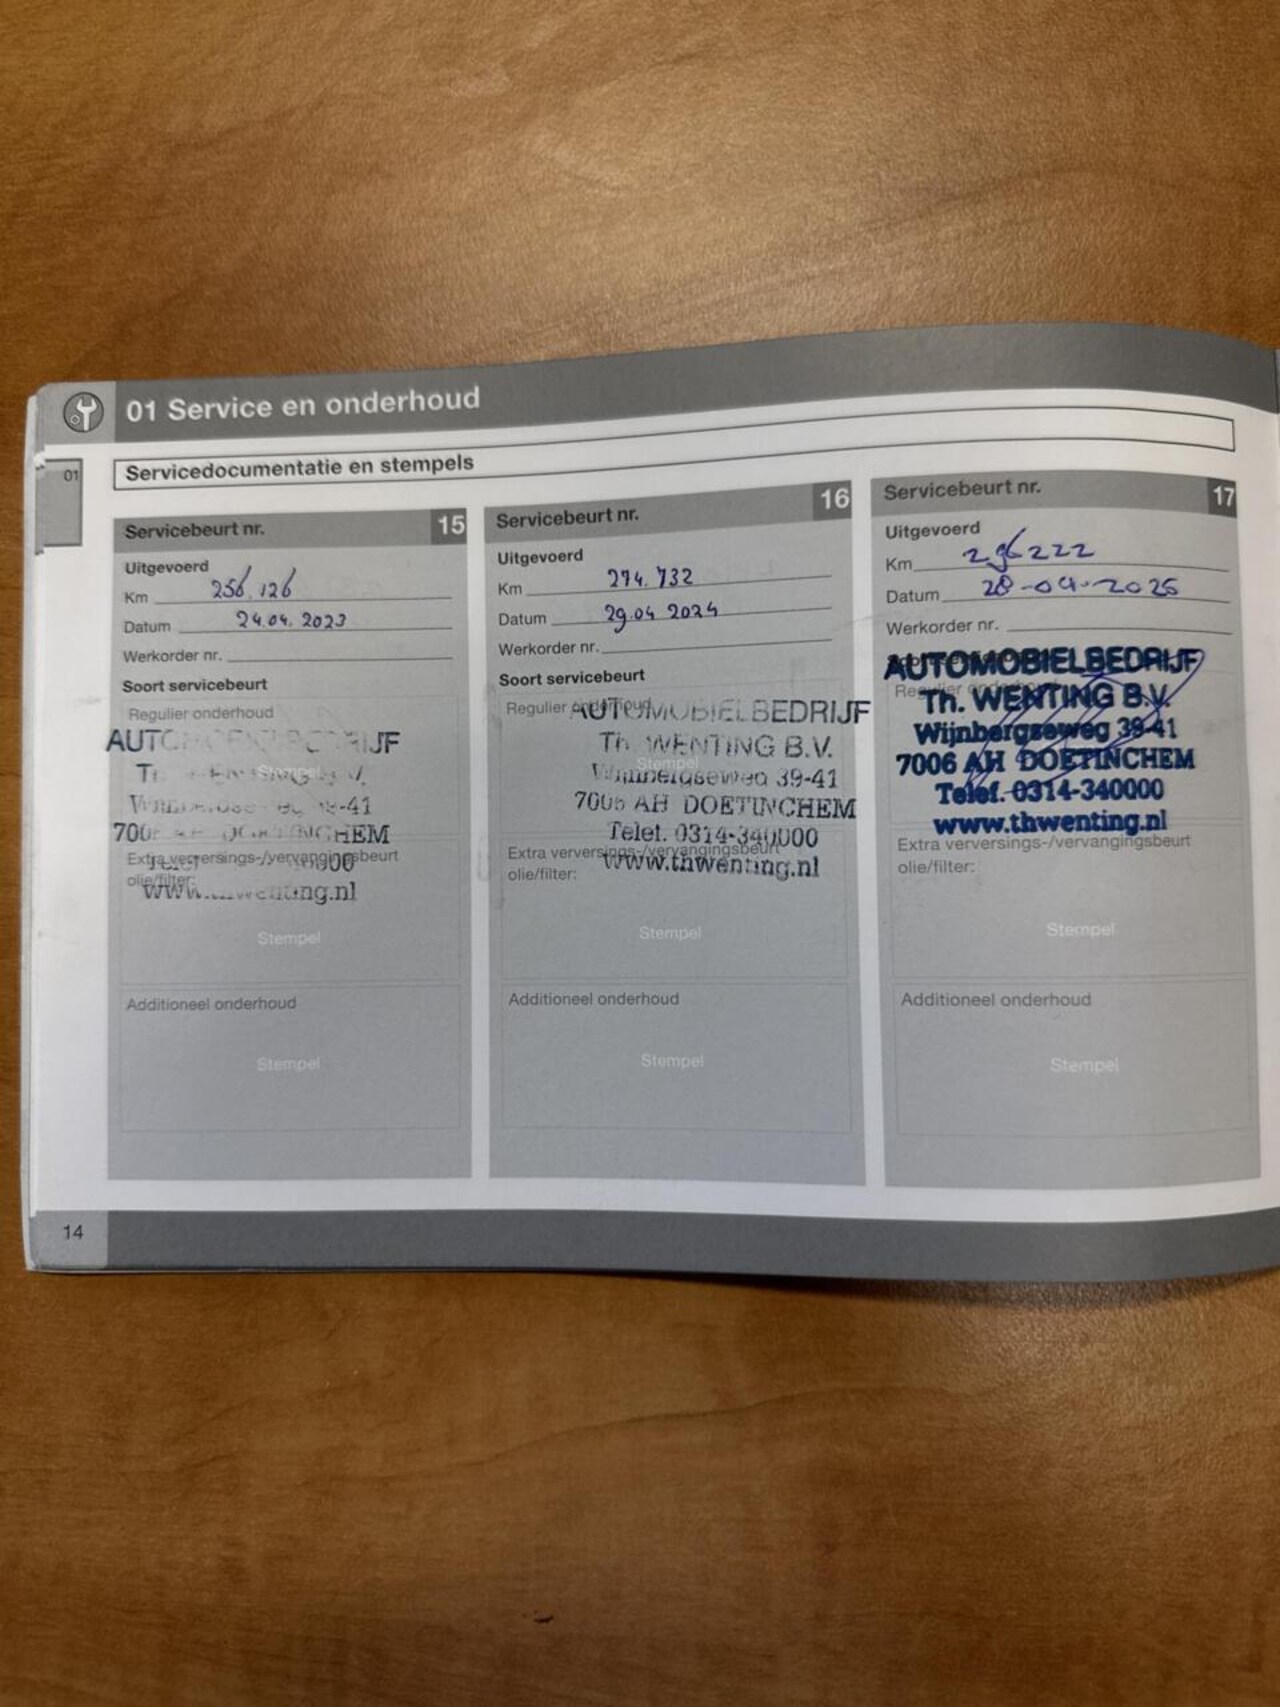 01 Service en onderhoud
01
Servicedocumentatie en stempels
Servicebeurt nr. 15
Uitgevoerd
Km 256.126
Datum 24.04.2023
Werkorder nr.
Soort servicebeurt
Regulier onderhoud
Stempel
7006 AH DOETINCHEM
Extra verversings-/vervangingsbeurt
olie/filter:
Stempel
Additioneel onderhoud
Stempel
Servicebeurt nr. 16
Uitgevoerd
Km 274.732
Datum 29.04 2024
Werkorder nr.
Soort servicebeurt
Regulier onderhoud
AUTOMOBIELBEDRIJF
Th. WENTING B.V.
Stempel
Wijnbergseweg 39-41
7006 AH DOETINCHEM
Telef. 0314-340000
Extra verversings-/vervangingsbeurt
www.thwenting.nl
olie/filter:
Stempel
Additioneel onderhoud
Stempel
Servicebeurt nr. 17
Uitgevoerd
Km 296222
Datum 28-04-2025
Werkorder nr.
AUTOMOBIELBEDRIJF
Regulier onderhoud
Th. WENTING B.V.
Wijnbergseweg 39-41
7006 AH DOETINCHEM
Telef. 0314-340000
www.thwenting.nl
Extra verversings-/vervangingsbeurt
olie/filter:
Stempel
Additioneel onderhoud
Stempel
14